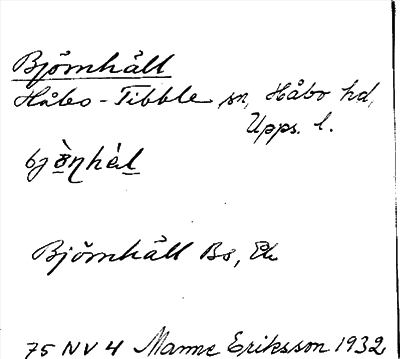 Björnhäll
Håbo-Tibble sn, Håbo hd,
Upps. l.
Björnhäll Bs, Ek
75 NV 4 Manne Eriksson 1932